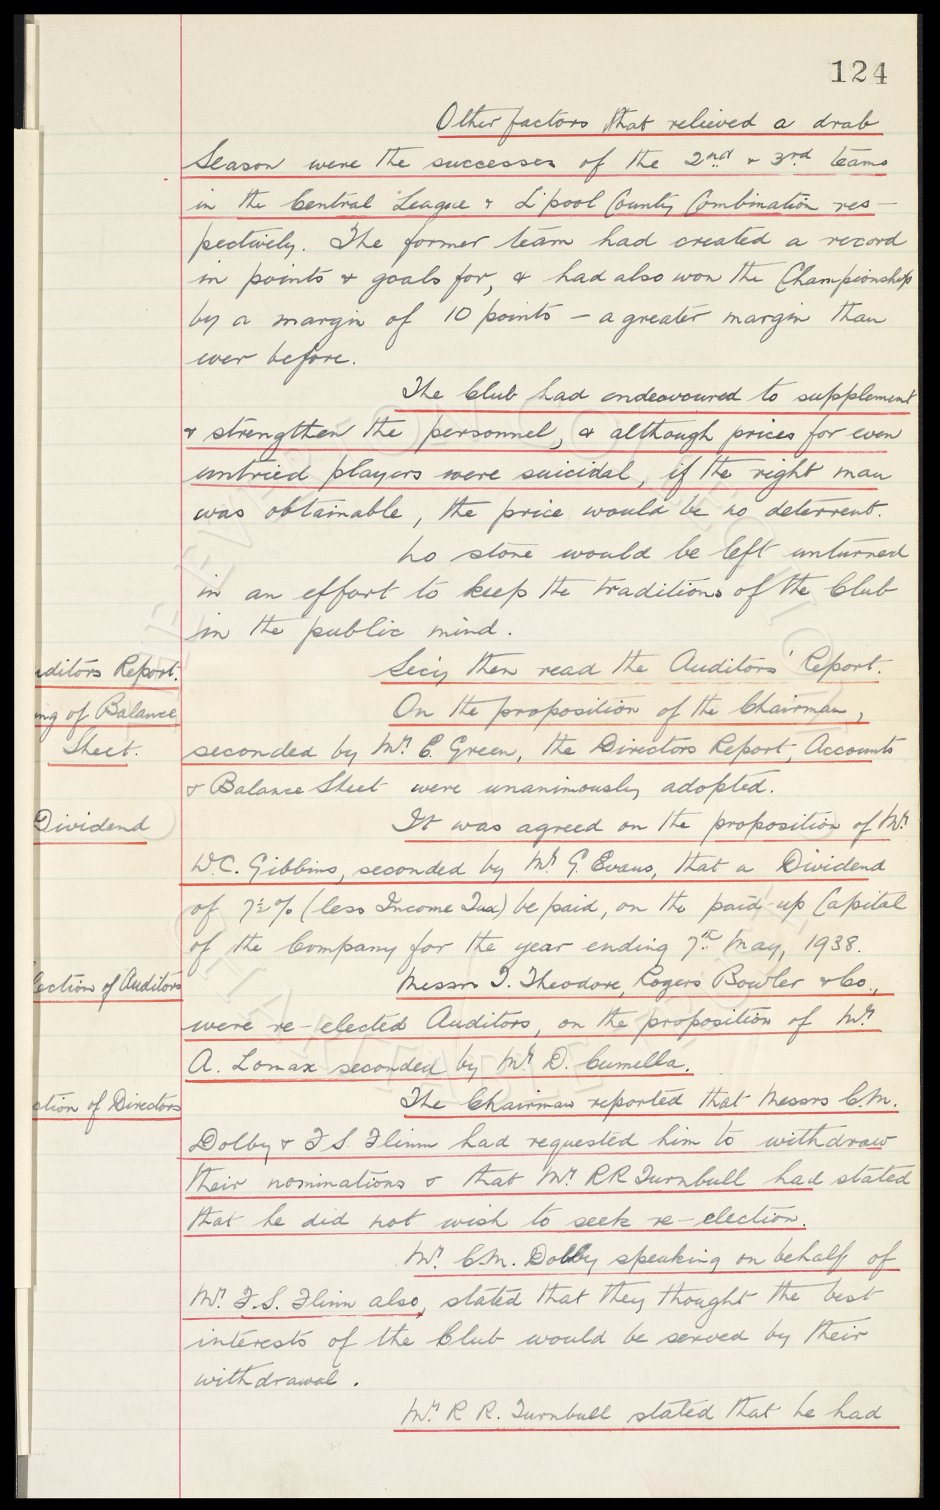 124
Other factors that relieved a drab
Season were the successes of the 2nd & 3rd teams
in the Central League & L'pool County Combination res-
pectively. The former team had created a record
in points & goals for, & had also won the Championship
by a margin of 10 points - a greater margin than
ever before.
The Club had endeavoured to supplement
& strengthen the personnel, & although prices for even
untried players were suicidal, if the right man
was obtainable, the price would be no deterrent.
No stone would be left unturned
in an effort to keep the traditions of the Club
in the public mind.
uditors Report. Secy then read the Auditors' Report.
ing of Balance On the proposition of the Chairman,
Sheet. seconded by Mr. C. Green, the Directors Report, Accounts
& Balance Sheet were unanimously adopted.
Dividend It was agreed on the proposition of Mr.
W.C. Gibbins, seconded by Mr. G. Evans, that a Dividend
of 7½% (less Income Tax) be paid, on the paid-up Capital
of the Company for the year ending 7th May, 1938.
lection of Auditors Messrs T. Theodore, Rogers Bowler & Co.,
were re-elected Auditors, on the proposition of Mr.
A. Lomax seconded by Mr. D. Cumella.
ction of Directors The Chairman reported that Messrs C.M.
Dolby & F S Flinn had requested him to withdraw
their nominations & that Mr. R R Turnbull had stated
that he did not wish to seek re-election.
Mr. C.M. Dolby speaking on behalf of
Mr. F.S. Flinn also, stated that they thought the best
interests of the Club would be served by their
withdrawal.
Mr. R R. Turnbull stated that he had
EVERTON COLLECTION
CHARITABLE TRUST